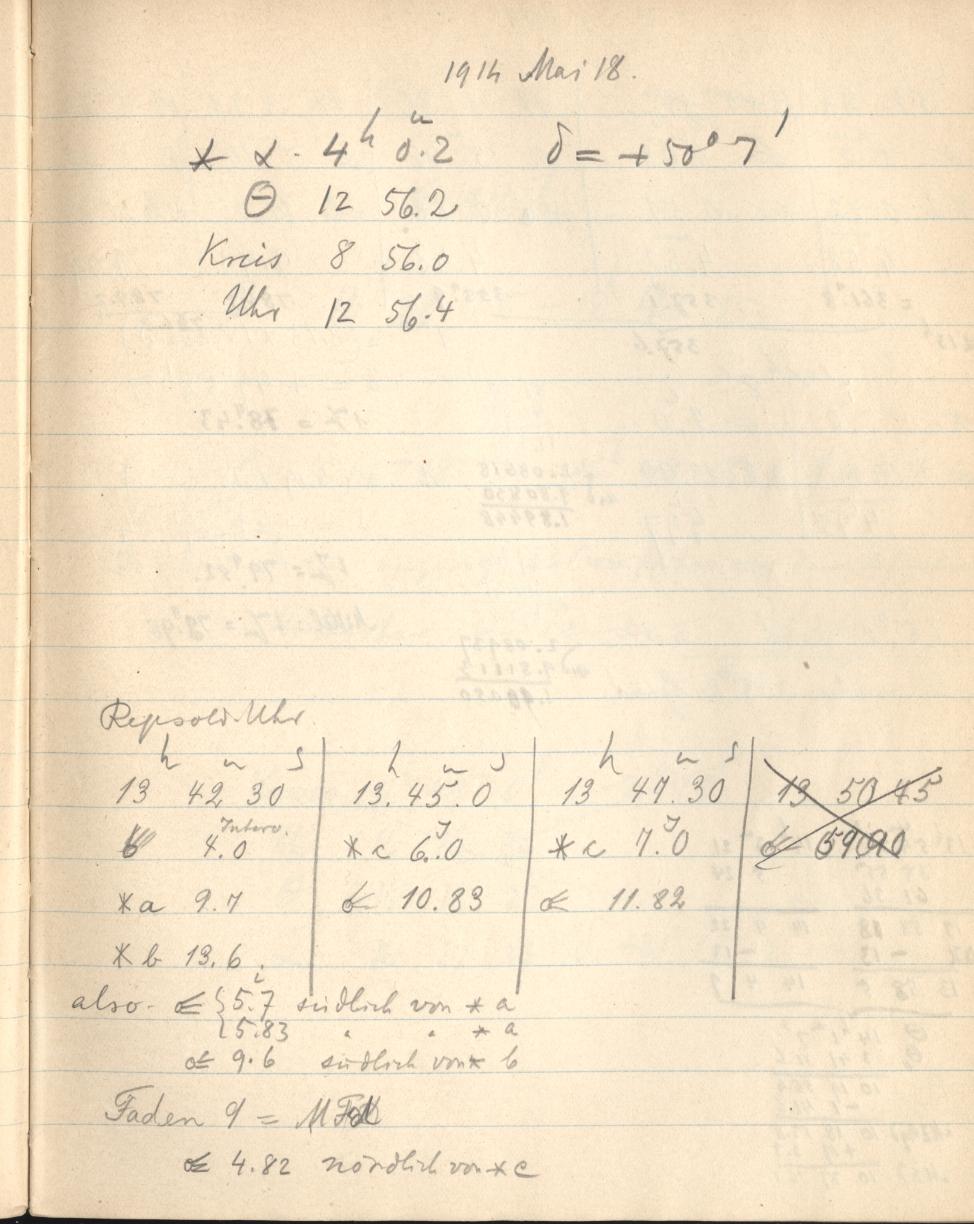 1914 Mai 18.
* α. 4ʰ 0.2ᵐ δ = +50° 7'
Θ 12 56.2
Kreis 8 56.0
Uhr 12 56.4
Repsold-Uhr.
h m s h m s h m s
13 42 30 13. 45. 0 13 47. 30 13 50 45
☄ 4.0 Interv. *c 6.0 J *c 7.0 J ☄ 5990
*a 9.7 ☄ 10.83 ☄ 11.82
*b 13.6
also. ☄ 5.7 i südlich von *a
5.83 " " *a
☄ 9.6 südlich von *b
Faden 9 =
☄ 4.82 nördlich von *c